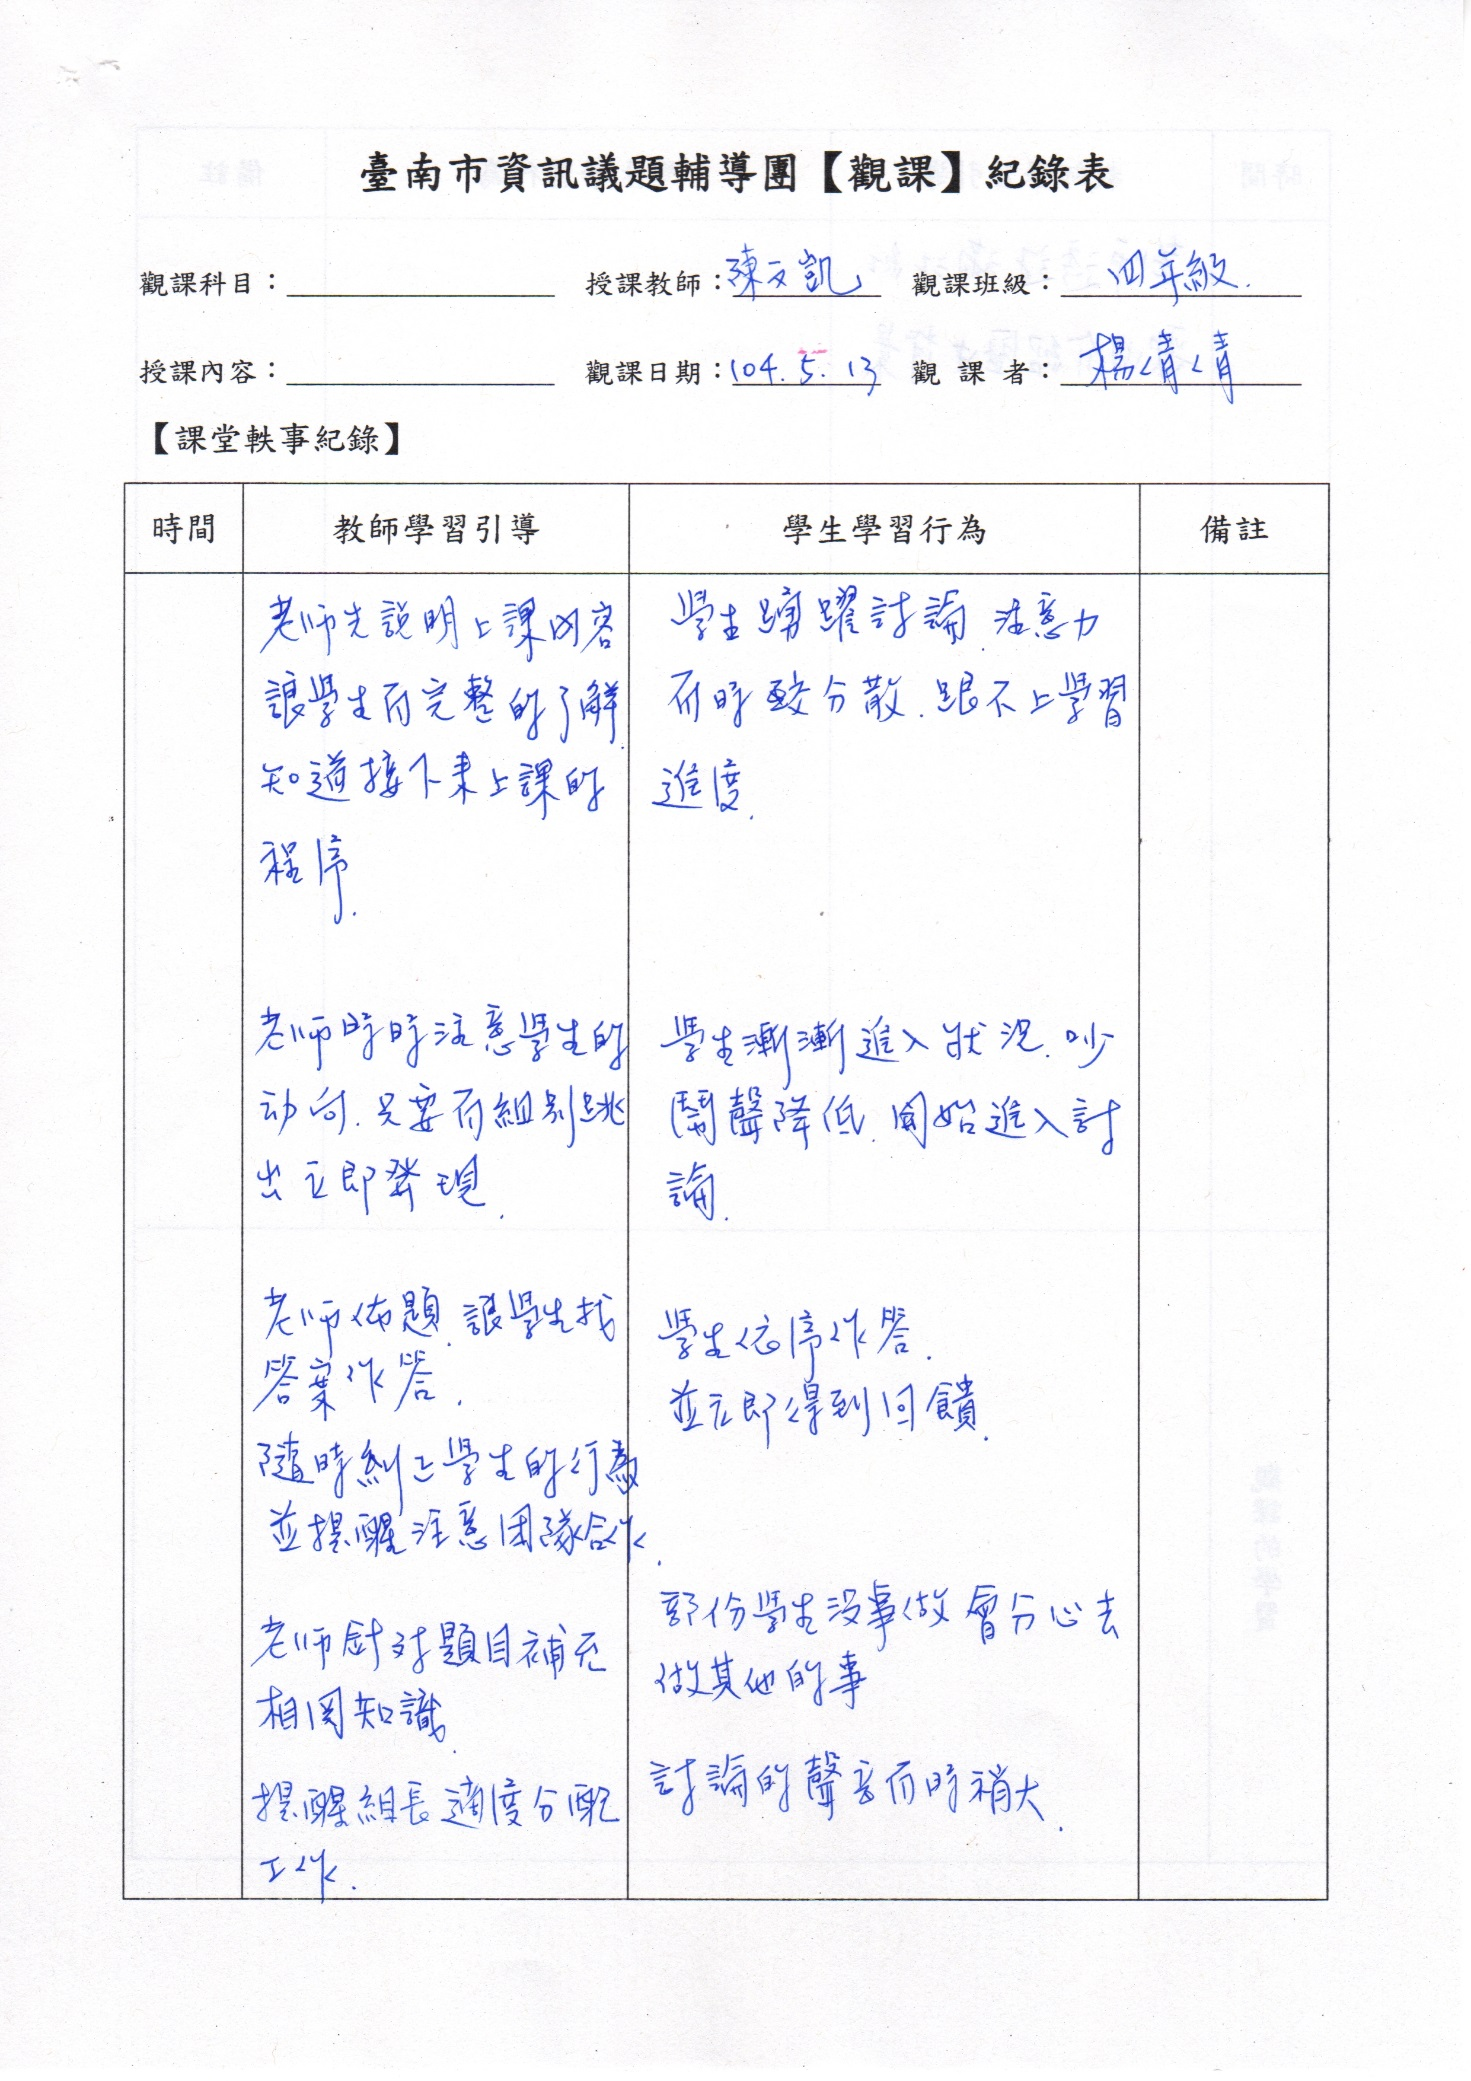 臺南市資訊議題輔導團【觀課】紀錄表
觀課科目： 授課教師：陳文凱 觀課班級：四年級.
授課內容： 觀課日期：104.5.13 觀課者：楊倩倩
【課堂軼事紀錄】
時間 教師學習引導 學生學習行為 備註
老師先說明上課內容
讓學生有完整的了解.
知道接下來上課的
程序.
學生踴躍討論.注意力
有時較分散.跟不上學習
進度.
老師時時注意學生的
动向.只要有組別跳
出立即發現.
學生漸漸進入狀況.吵
鬧聲降低.開始進入討
論.
老師佈題.讓學生找
答案作答.
隨時糾正學生的行為
並提醒注意团隊合作.
學生依序作答.
並立即得到回饋.
老師針对題目補充
相関知識.
提醒組長適度分配
工作.
部份學生沒事做會分心去
做其他的事
討論的聲音有時稍大.